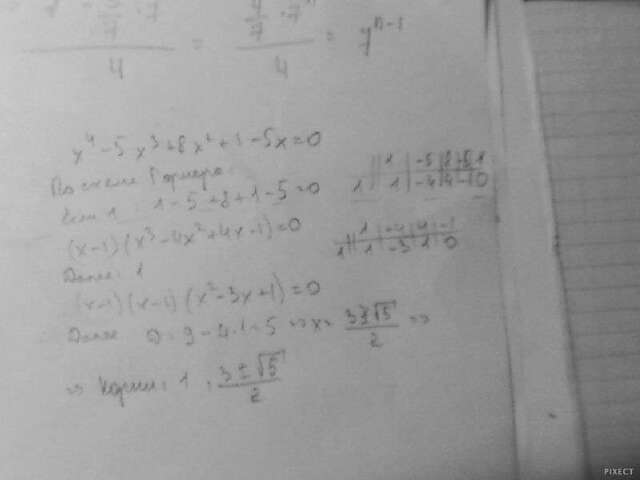 4/7 · 7ⁿ
4 = 4 = 7ⁿ⁻¹
x⁴ - 5x³ + 8x² + 1 - 5x = 0
По схеме Горнера:
Если 1: 1 - 5 + 8 + 1 - 5 = 0
1 | -5 | 8 | -5 | 1
1 | 1 | -4 | 4 | -1 | 0
(x-1)(x³ - 4x² + 4x - 1) = 0
1 | -4 | 4 | -1
1 | 1 | -3 | 1 | 0
Далее: 1
(x-1)(x-1)(x² - 3x + 1) = 0
Далее D = 9 - 4·1 = 5 => x = (3±√5)/2 =>
=> Корни: 1, (3±√5)/2
PIXECT